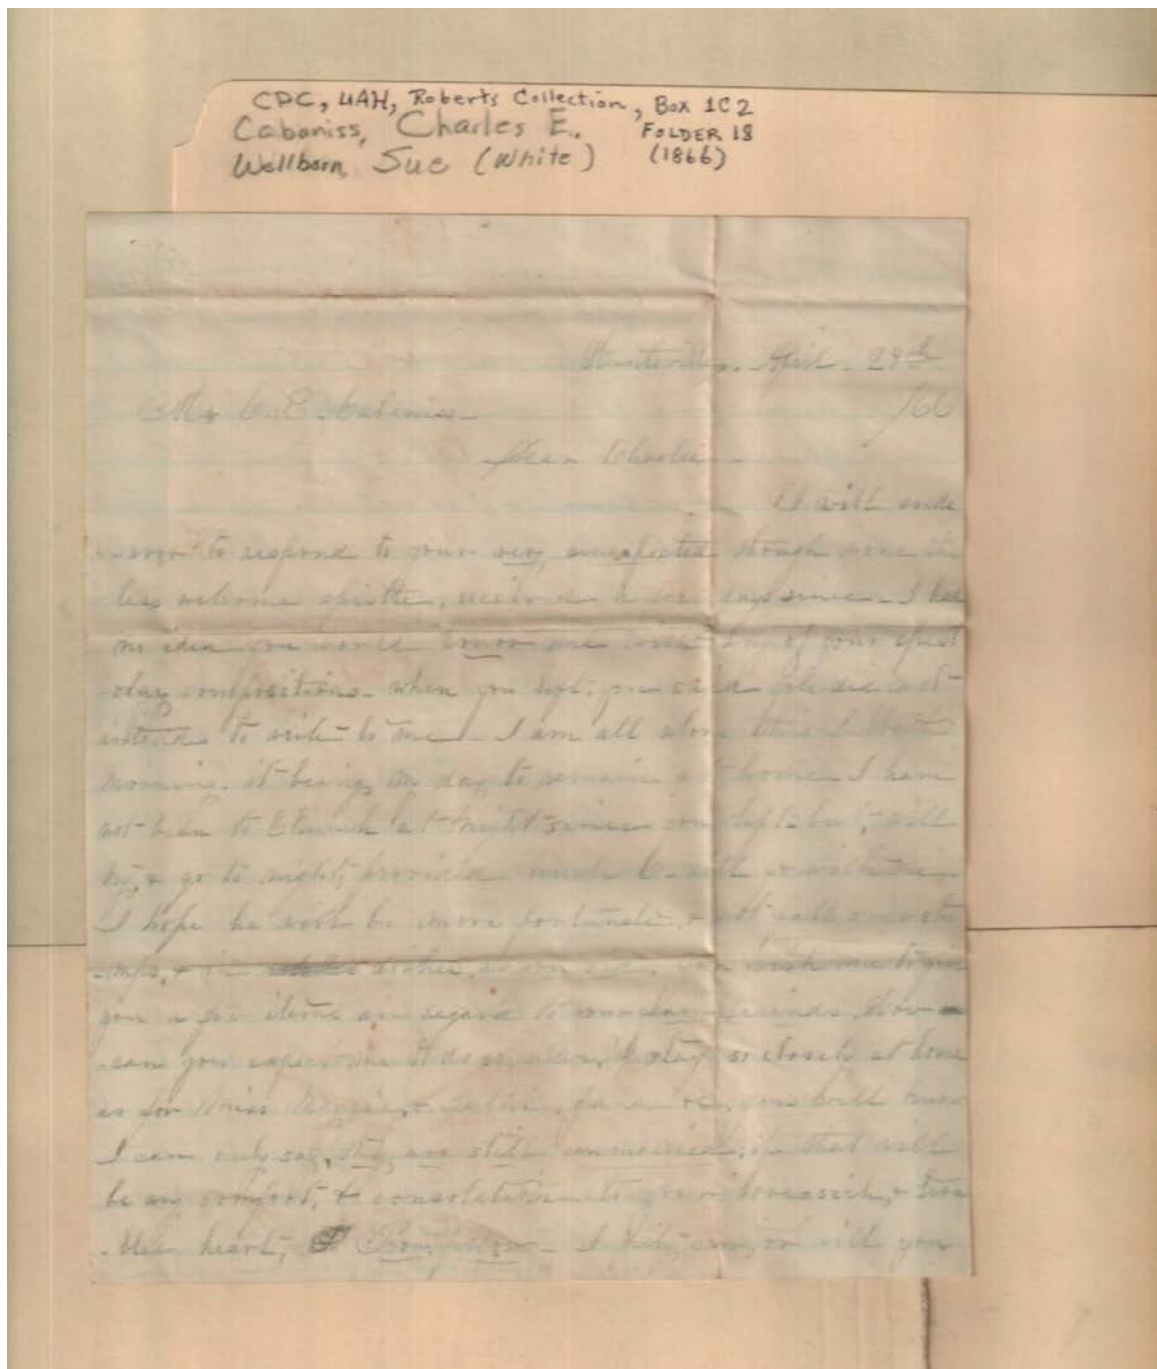 CPC, UAH, Roberts Collection, Box 1C2
Cabaniss, Charles E. FOLDER 18
Wellborn, Sue (White) (1866)
Huntsville. April. 28th
/66
Mr C. E. Cabaniss
Dear Charlie
I will ende
-avor to respond to your very unexpected though none the
less welcome epistle, received a few days since. I had
no idea you would honor me with any of your epist
-olary compositions. when you left; you said you did not
intend to write to me. I am all alone this
morning. it being my day to remain at home. I have
not been to Church at night since you left but, will
try, & go to night, provided will go with me.
I hope he will be more fortunate, & not
you wish me to give
you a few items in regard to your friends. How
can you expect me to do so, when, I stay so closely at home
as for Miss you well know
I can only say, they are still unmarried; if that will
be any comfort, & consolation to your & trou
-bled heart; I will you